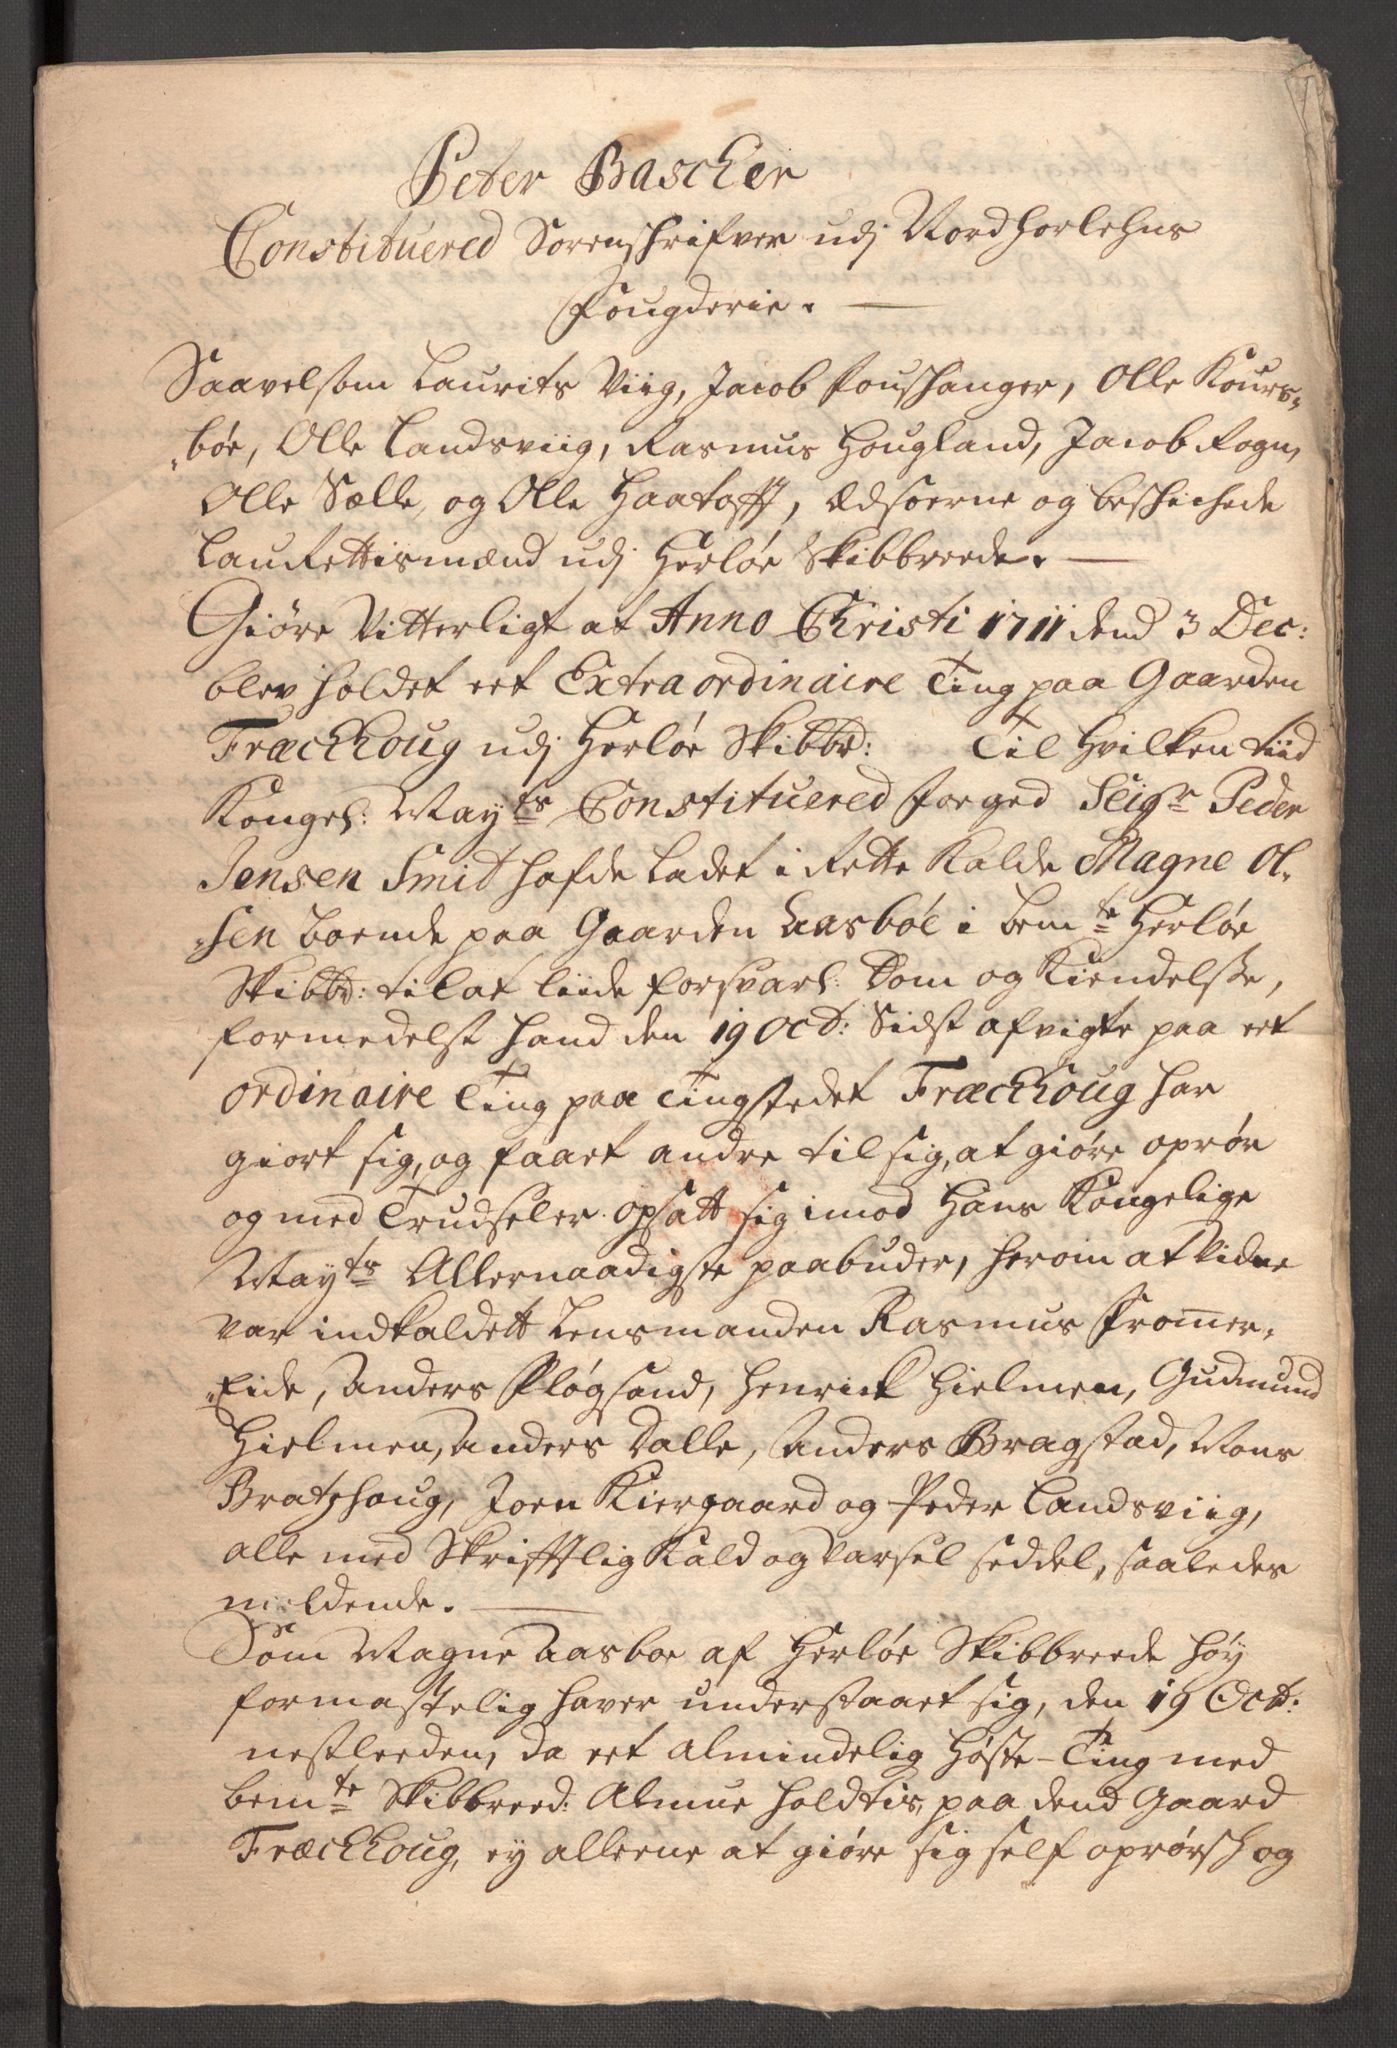 Peter Bascher
Constituered Sorenschrifver udj Nordhorlehns
Fougderie.
Saavelsom Laurits Viig, Jacob Foushanger, Olle Kours-
bøe, Olle Landsviig, Rasmus Hougland, Jacob Rogn,
Olle Sælle, og Olle Haatofft, Edsoerne og beschichede
LauRettismænd udj Herløe Skibbreede.
Giøre Vitterligt at Anno Christi 1711 dend 3 Dec:
blev holdet eet Extra ordinaire Ting paa Gaarden
Fræchhoug udj Herløe Skibbr: Til Hvilken tiid
Kongel: May^ts Constituered foeged Seig^r Peder
Jensen Smit hafde Ladet i Rette Kalde Magne Ol-
sen boende paa Gaarden Aasbøe i bem^te Herløe
Skibbr: til at liide forsvarl: Dom og Kiendelsse,
formedelst hand den 19 Oct: Sidst afvigte paa eet
ordinaire Ting paa Tingstedet Fræchhoug har
giort sig, og faaet andre til sig, at giøre oprør
og med Trudseler opsatt sig imod Hans Kongelige
May^ts Allernaadigste paabuder, herom at Vidne
var indkaldett Lensmanden Rasmus Fromer-
Eide, Anders Pløgsand, Henrich Hielmen, Gudmund
Hielmen, Anders Dalle, Anders Bragstad, Mons
Bratzhoug, Joen Kiergaard og Peder Landsviig,
alle med Skrifftlig Kald og varsel seddel, saaledes
meldende.
Som Magne Aasboe af Herløe Skibbreede høy
formastelig haver understaaet sig, den 19 Oct:
nestleeden, da eet almindelig Høste-Ting med
bem^te Skibbreed: Almue holdtis, paa dend Gaard
Fræchhoug, ey alleene at giøre sig self oprørsch og